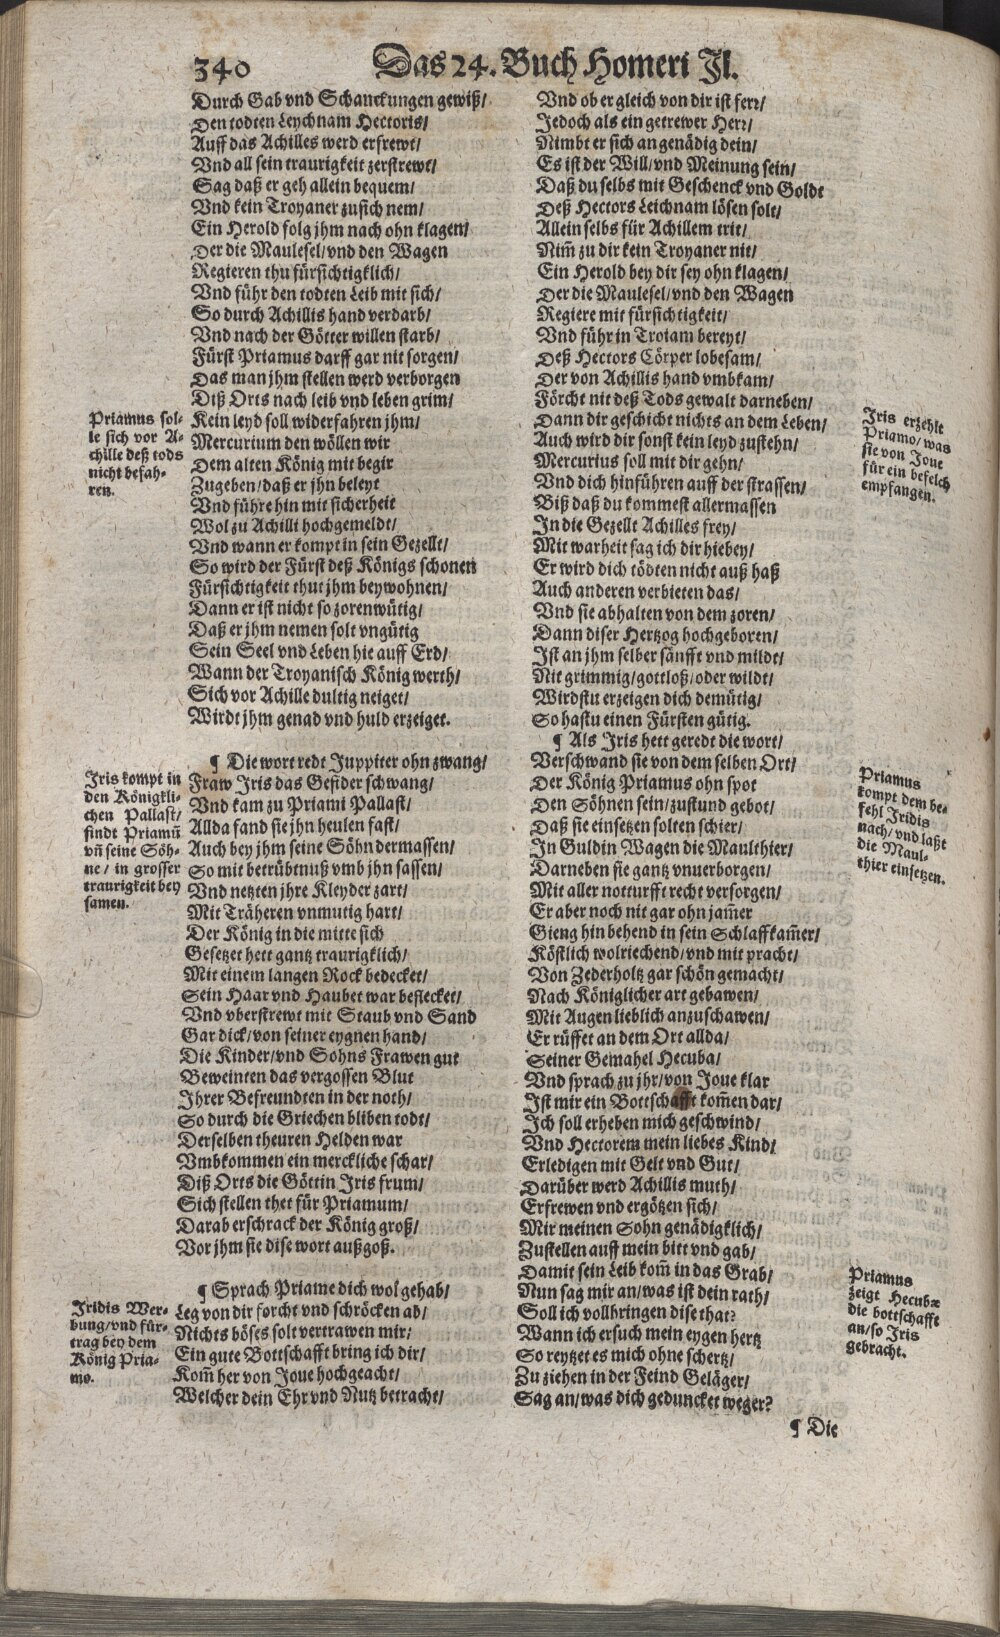 340 Das 24. Buch Homeri Jl.
Durch Gab vnd Schanckungen gewiß/
Den todten Leychnam Hectoris/
Auff das Achilles werd erfrewt/
Vnd all sein traurigkeit zerstrewt/
Sag daß er geh allein bequem/
Vnd kein Troyaner zu sich nem/
Ein Herold folg jhm nach ohn klagen/
Der die Maulesel/vnd den Wagen
Regieren thu fürsichtigklich/
Vnd führ den todten Leib mit sich/
So durch Achillis hand verdarb/
Vnd nach der Götter willen starb/
Fürst Priamus darff gar nit sorgen/
Das man jhm stellen werd verborgen
Diß Orts nach leib vnd leben grim/
Kein leyd soll widerfahren jhm/
Mercurium den wöllen wir
Dem alten König mit begir
Zugeben/daß er jhn beleyt
Vnd führe hin mit sicherheit
Wol zu Achilli hochgemeldt/
Vnd wann er kompt in sein Gezellt/
So wird der Fürst deß Königs schonen
Fürsichtigkeit thut jhm beywohnen/
Dann er ist nicht so zorenwütig/
Daß er jhm nemen solt vngütig
Sein Seel vnd Leben hie auff Erd/
Wann der Troyanisch König werth/
Sich vor Achille dultig neiget/
Wirdt jhm genad vnd huld erzeiget.
Priamus sol-
le sich vor A-
chille deß tods
nicht befah-
ren.
¶ Die wort redt Juppiter ohn zwang/
Fraw Iris das Gefider schwang/
Vnd kam zu Priami Pallast/
Allda fand sie jhn heulen fast/
Auch bey jhm seine Söhn dermassen/
So mit betrübtnuß vmb jhn sassen/
Vnd netzten jhre Kleyder zart/
Mit Träheren vnmutig hart/
Der König in die mitte sich
Gesetzet hett gantz traurigklich/
Mit einem langen Rock bedecket/
Sein Haar vnd Haubet war beflecket/
Vnd vberstrewt mit Staub vnd Sand
Gar dick/von seiner eygnen hand/
Die Kinder/vnd Sohns Frawen gut
Beweinten das vergossen Blut
Jhrer Befreundten in der noth/
So durch die Griechen bliben todt/
Derselben theuren Helden war
Vmbkommen ein merckliche schar/
Diß Orts die Göttin Iris frum/
Sich stellen thet für Priamum/
Darab erschrack der König groß/
Vor jhm sie dise wort außgoß.
Iris kompt in
den Königkli-
chen Pallast/
findt Priamū
vñ seine Söh-
ne / in grosser
traurigkeit bey
samen.
¶ Sprach Priame dich wol gehab/
Leg von dir forcht vnd schröcken ab/
Nichts böses solt vertrawen mir/
Ein gute Bottschafft bring ich dir/
Kom̃ her von Joue hochgeacht/
Welcher dein Ehr vnd Nutz betracht/
Iridis Wer-
bung/vnd für-
trag bey dem
König Pria-
mo.
Vnd ob er gleich von dir ist ferr/
Jedoch als ein getrewer Herr/
Nimbt er sich an genädig dein/
Es ist der Will/vnd Meinung sein/
Daß du selbs mit Geschenck vnd Goldt
Deß Hectors Leichnam lösen solt/
Allein selbs für Achillem trit/
Nim̃ zu dir kein Troyaner nit/
Ein Herold bey dir sey ohn klagen/
Der die Maulesel/vnd den Wagen
Regiere mit fürsichtigkeit/
Vnd führ in Troiam bereyt/
Deß Hectors Cörper lobesam/
Der von Achillis hand vmbkam/
Förcht nit deß Tods gewalt darneben/
Dann dir geschicht nichts an dem Leben/
Auch wird dir sonst kein leyd zustehn/
Mercurius soll mit dir gehn/
Vnd dich hinführen auff der strassen/
Biß daß du kommest allermassen
In die Gezellt Achilles frey/
Mit warheit sag ich dir hiebey/
Er wird dich tödten nicht auß haß
Auch anderen verbieten das/
Vnd sie abhalten von dem zoren/
Dann diser Hertzog hochgeboren/
Ist an jhm selber sänfft vnd mildt/
Nit grimmig/gottloß/oder wildt/
Wirdstu erzeigen dich demütig/
So hastu einen Fürsten gütig.
Iris erzehlt
Priamo/was
sie von Joue
für ein befelch
empfangen.
¶ Als Iris hett geredt die wort/
Verschwand sie von dem selben Ort/
Der König Priamus ohn spot
Den Söhnen sein/zustund gebot/
Daß sie einsetzen solten schier/
In Guldin Wagen die Maulthier/
Darneben sie gantz vnuerborgen/
Mit aller notturfft recht versorgen/
Er aber noch nit gar ohn jam̃er
Gieng hin behend in sein Schlaffkam̃er/
Köstlich wolriechend/vnd mit pracht/
Von Zederholtz gar schön gemacht/
Nach Königlicher art gebawen/
Mit Augen lieblich anzuschawen/
Er rüffet an dem Ort allda/
Seiner Gemahel Hecuba/
Vnd sprach zu jhr/von Joue klar
Ist mir ein Bottschafft kom̃en dar/
Ich soll erheben mich geschwind/
Vnd Hectorem mein liebes Kind/
Erledigen mit Gelt vnd Gut/
Darüber werd Achillis muth/
Erfrewen vnd ergötzen sich/
Mir meinen Sohn genädigklich/
Zustellen auff mein bitt vnd gab/
Damit sein Leib kom̃ in das Grab/
Nun sag mir an/was ist dein rath/
Soll ich vollbringen dise that?
Wann ich ersuch mein eygen hertz
So reytzet es mich ohne schertz/
Zu ziehen in der Feind Geläger/
Sag an/was dich geduncket weger?
Priamus
kompt dem be-
fehl Iridis
nach/vnd laßt
die Maul-
thier einsetzen.
Priamus
zeigt Hecubæ
die bottschafft
an/so Iris
gebracht.
¶ Die